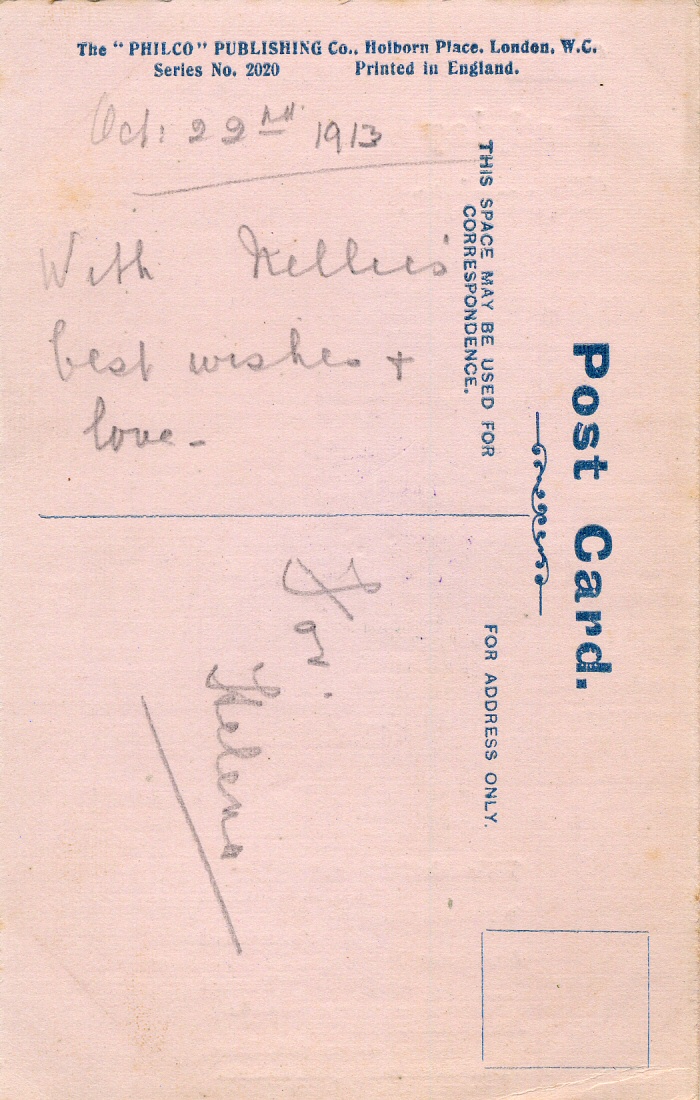 The "PHILCO" PUBLISHING Co., Holborn Place, London, W.C.
Series No. 2020 Printed in England.
Oct: 22nd. 1913
With Nellie's
best wishes +
love -
THIS SPACE MAY BE USED FOR
CORRESPONDENCE.
Post Card.
FOR ADDRESS ONLY.
For.
Helena